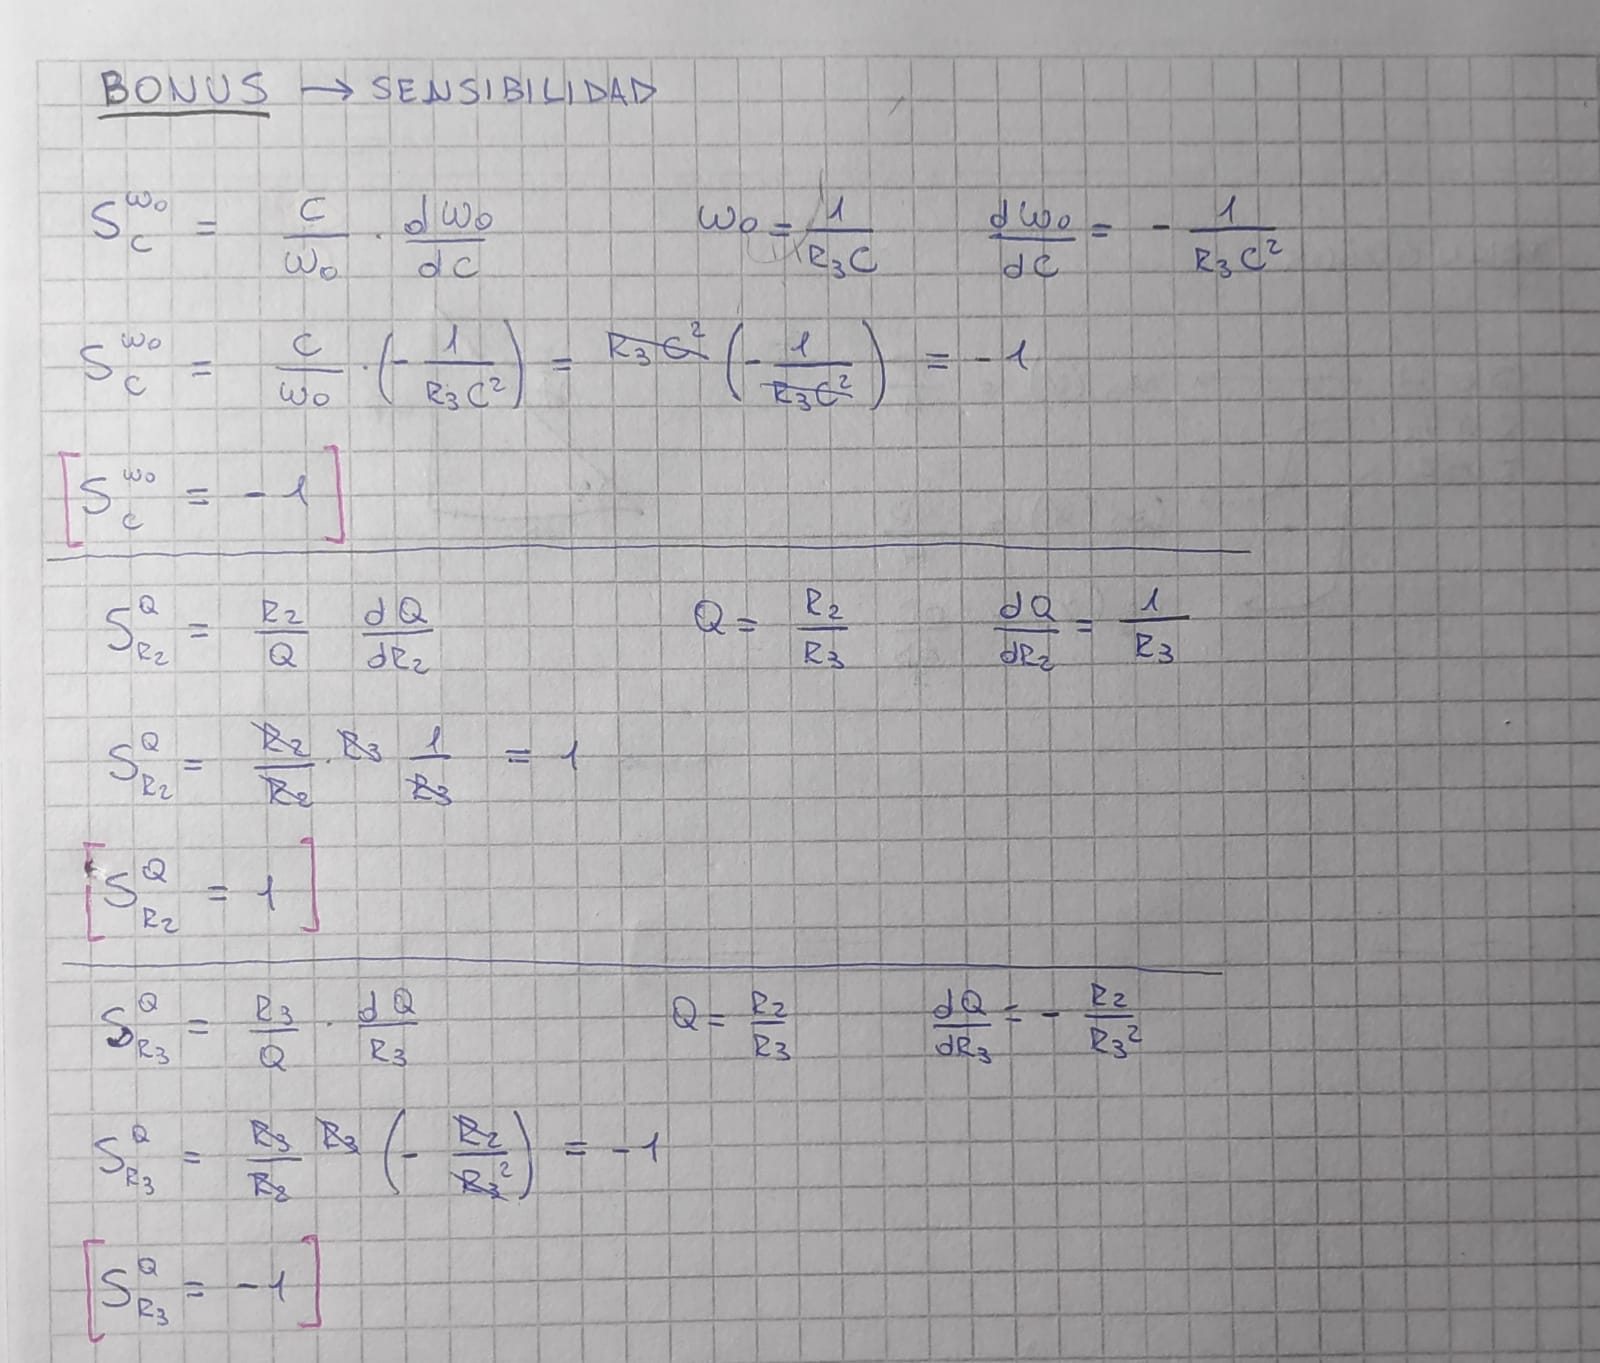 BONUS → SENSIBILIDAD
S_C^ω₀ = C/ω₀ · dω₀/dC    ω₀ = 1/(R₃C)    dω₀/dC = - 1/(R₃C²)
S_C^ω₀ = C/ω₀ · (- 1/(R₃C²)) = R₃C² (- 1/(R₃C²)) = -1
[S_C^ω₀ = -1]
S_R₂^Q = R₂/Q dQ/dR₂    Q = R₂/R₃    dQ/dR₂ = 1/R₃
S_R₂^Q = R₂/R₂ · R₃ 1/R₃ = 1
[S_R₂^Q = 1]
S_R₃^Q = R₃/Q · dQ/R₃    Q = R₂/R₃    dQ/dR₃ = - R₂/R₃²
S_R₃^Q = R₃/R₂ R₃ (- R₂/R₃²) = -1
[S_R₃^Q = -1]